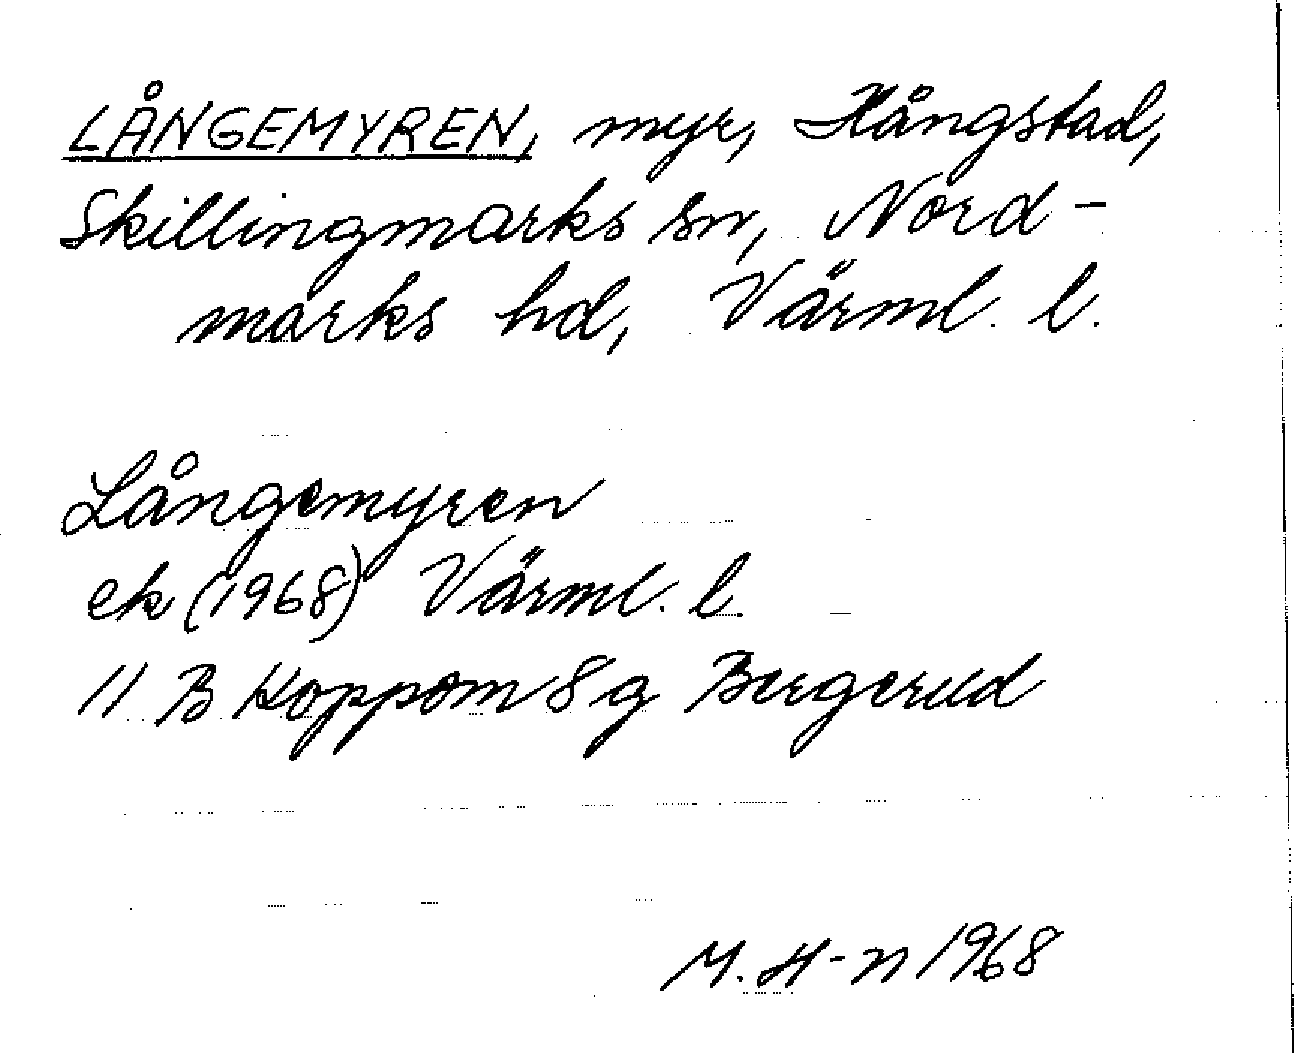 LÅNGEMYREN, myr, Hångstad,
Skillingmarks sn, Nord-
marks hd, Värml. l.
Långemyren
ek (1968) Värml. l.
11 B Koppom 8 g Bergerud
M. H-n 1968